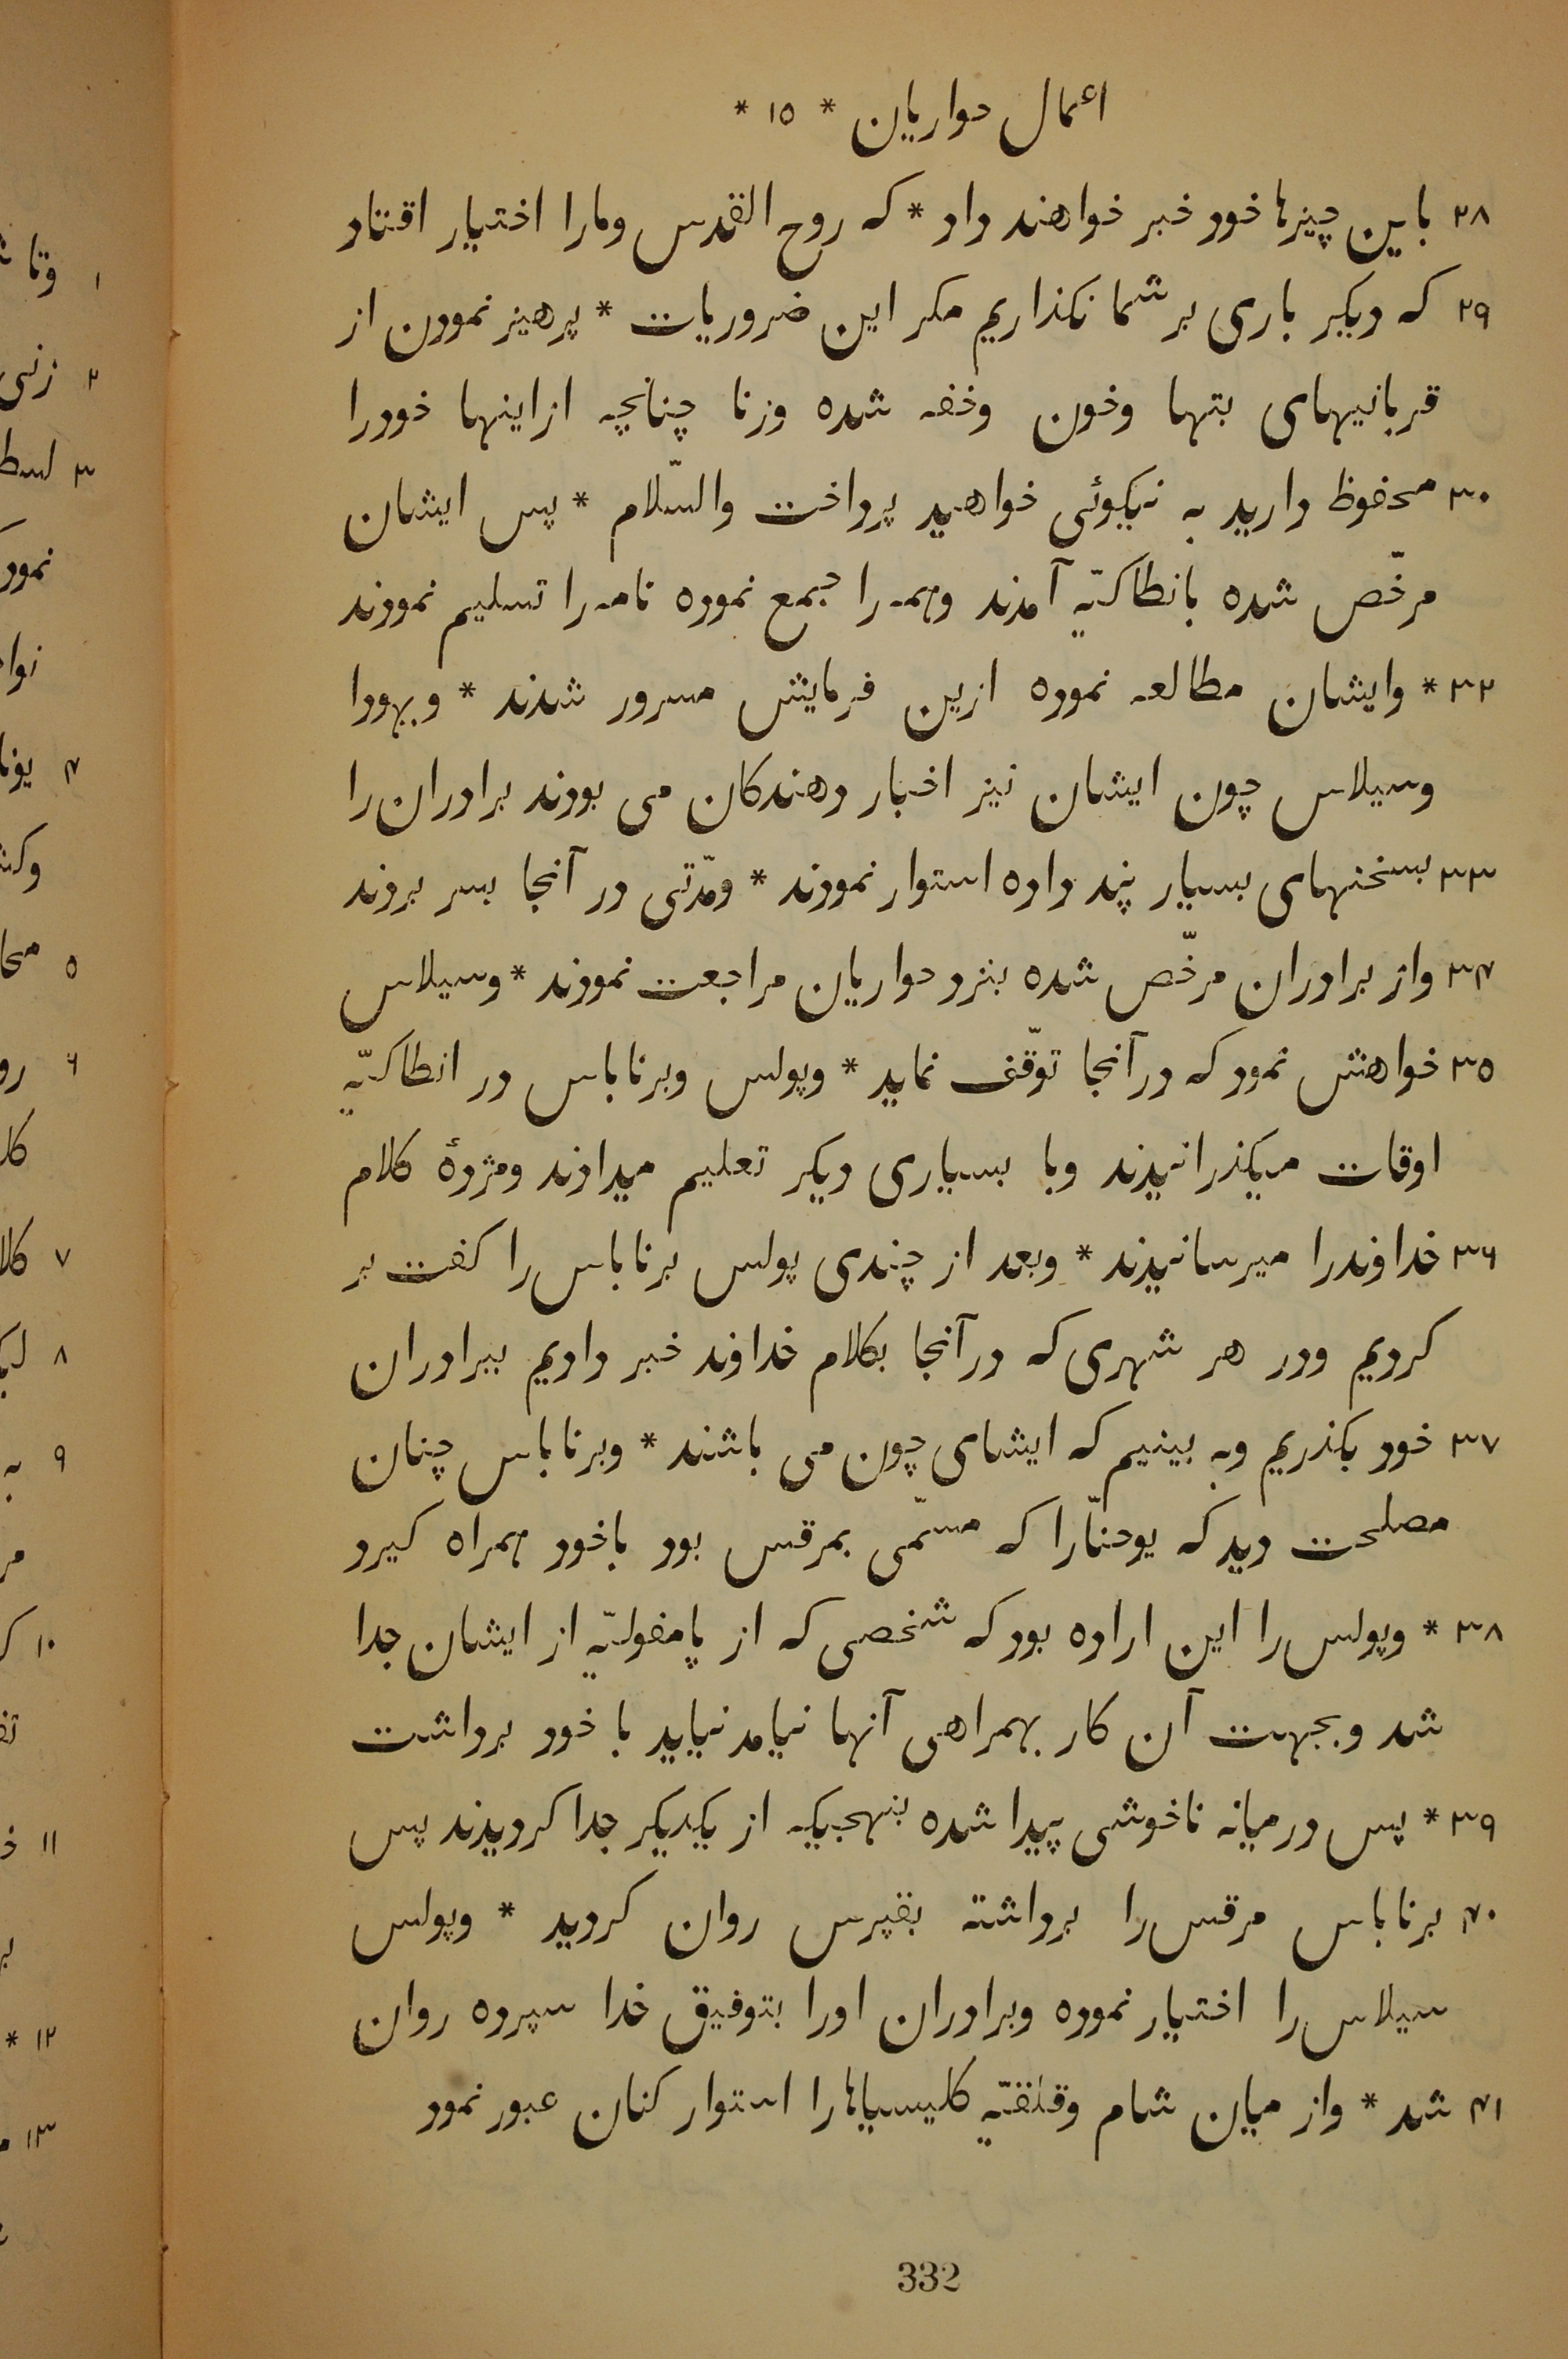 اعمال حواریان * ۱۵ *
۲۸ باین چیزها خود خبر خواهند داد * که روح القدس ومارا اختیار افتاد
۲۹ که دیکر باری بر شما نکذاریم مکر این ضروریات * پرهیز نمودن از
قربانیهای بتها وخون وخفه شده وزنا چنانچه ازاینها خودرا
۳۰ محفوظ دارید به نیکوئی خواهید پرداخت والسّلام * پس ایشان
مرخّص شده بانطاکیّه آمدند وهمه را جمع نموده نامه را تسلیم نمودند
۳۲ * وایشان مطالعه نموده ازین فرمایش مسرور شدند * و یهودا
وسیلاس چون ایشان نیز اخبار دهندکان می بودند برادران را
۳۳ بسخنهای بسیار پند داده استوار نمودند * ومدّتی در آنجا بسر بردند
۳۴ واز برادران مرخّص شده بنزد حواریان مراجعت نمودند * وسیلاس
۳۵ خواهش نمود که در آنجا توقّف نماید * وپولس وبرناباس در انطاکیّه
اوقات میکذرانیدند وبا بسیاری دیکر تعلیم میدادند ومژدهٔ کلام
۳۶ خداوندرا میرسانیدند * وبعد از چندی پولس برناباس را کفت بر
کردیم ودر هر شهری که در آنجا بکلام خداوند خبر دادیم ببرادران
۳۷ خود بکذریم وبه بینیم که ایشای چون می باشند * وبرناباس چنان
مصلحت دید که یوحنّارا که مسمّی بمرقس بود باخود همراه کیرد
۳۸ * وپولس را این اراده بود که شخصی که از پامفولیّه از ایشان جدا
شد وبجهت آن کار بهمراهی آنها نیامد نباید با خود برداشت
۳۹ * پس درمیانه ناخوشی پیدا شده بنهجیکه از یکدیکر جدا کردیدند پس
۴۰ برناباس مرقس را برداشته بقپرس روان کردید * وپولس
سیلاس را اختیار نموده وبرادران اورا بتوفیق خدا سپرده روان
۴۱ شد * واز میان شام وقلقیّه کلیسیاهارا استوار کنان عبور نمود
332